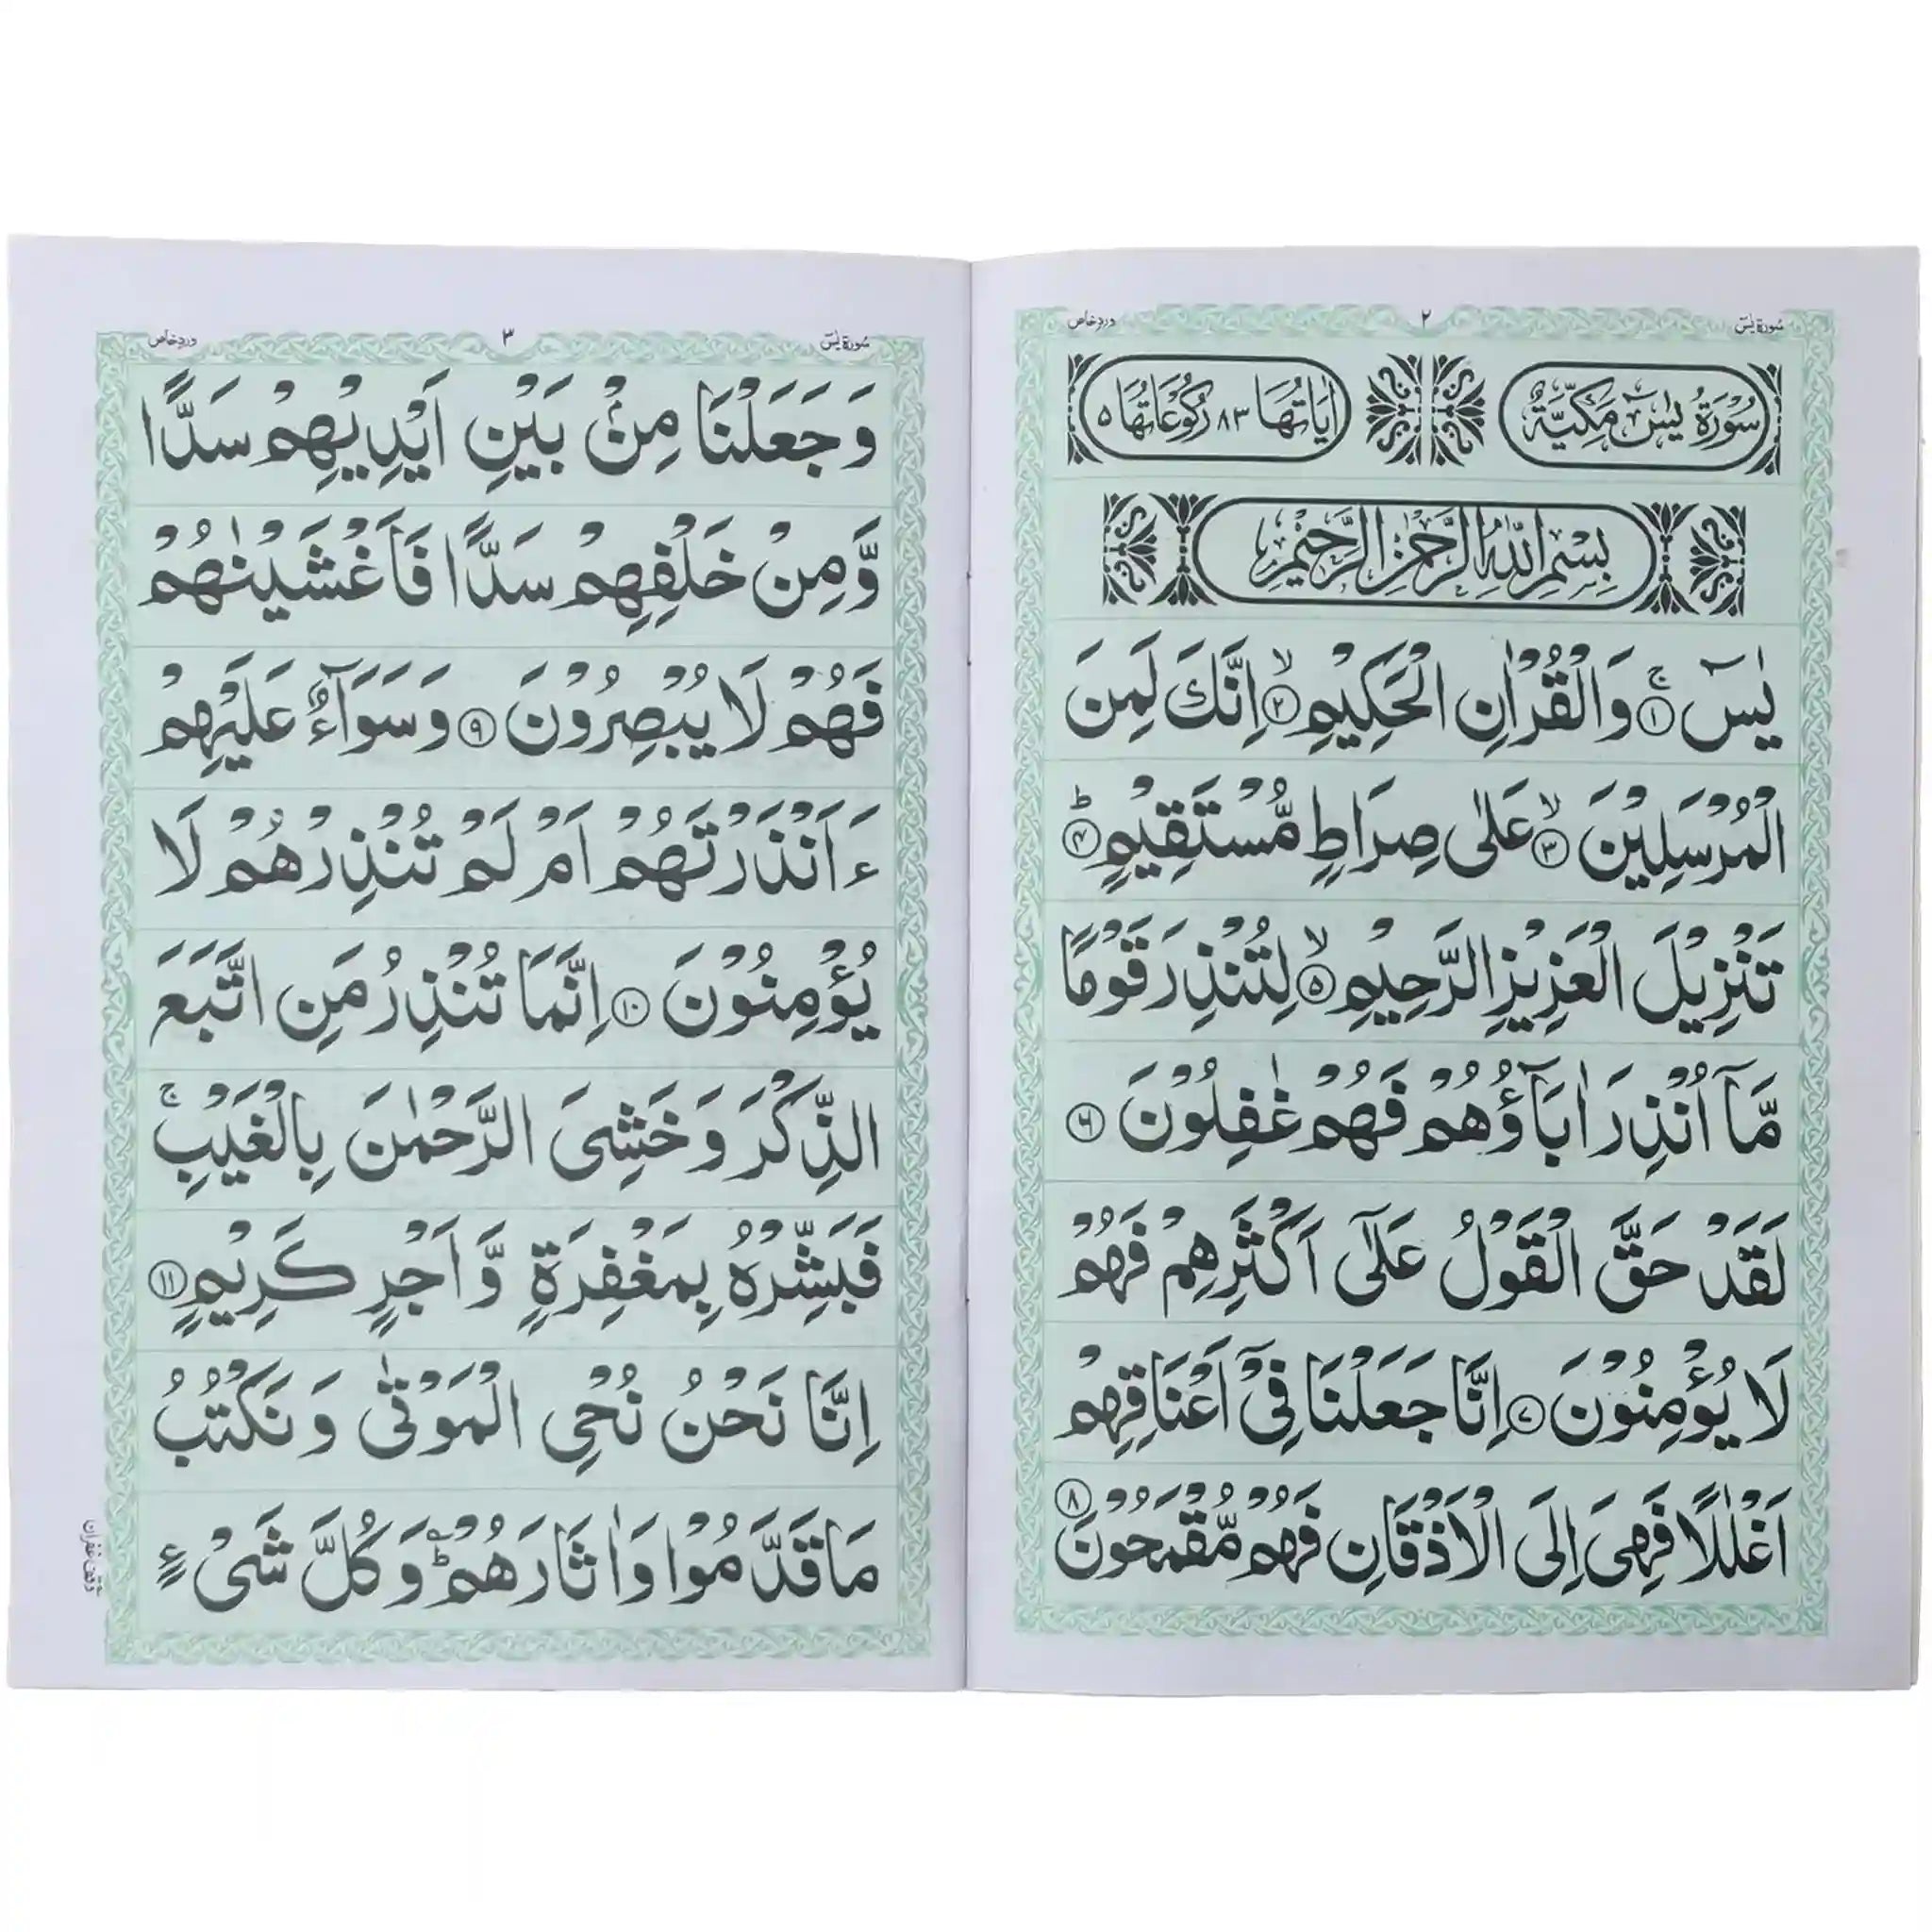 سُورَةُ يٰسٓ
٢
وردِ خاص
سُوْرَةُ يٰسٓ مَكِّيَّةٌ
اٰيَاتُهَا ٨٣ رُكُوْعَاتُهَا ٥
بِسْمِ اللّٰهِ الرَّحْمٰنِ الرَّحِيْمِ
يٰسٓ ۚ ۝١ وَالْقُرْاٰنِ الْحَكِيْمِ ۙ ۝٢ اِنَّكَ لَمِنَ
الْمُرْسَلِيْنَ ۙ ۝٣ عَلٰى صِرَاطٍ مُّسْتَقِيْمٍ ؕ ۝٤
تَنْزِيْلَ الْعَزِيْزِ الرَّحِيْمِ ۙ ۝٥ لِتُنْذِرَ قَوْمًا
مَّاۤ اُنْذِرَ اٰبَآؤُهُمْ فَهُمْ غٰفِلُوْنَ ۝٦
لَقَدْ حَقَّ الْقَوْلُ عَلٰۤى اَكْثَرِهِمْ فَهُمْ
لَا يُؤْمِنُوْنَ ۝٧ اِنَّا جَعَلْنَا فِيْۤ اَعْنَاقِهِمْ
اَغْلٰلًا فَهِيَ اِلَى الْاَذْقَانِ فَهُمْ مُّقْمَحُوْنَ ۝٨
سُورَةُ يٰسٓ
٣
وردِ خاص
وَجَعَلْنَا مِنْۢ بَيْنِ اَيْدِيْهِمْ سَدًّا
وَّمِنْ خَلْفِهِمْ سَدًّا فَاَغْشَيْنٰهُمْ
فَهُمْ لَا يُبْصِرُوْنَ ۝٩ وَسَوَآءٌ عَلَيْهِمْ
ءَاَنْذَرْتَهُمْ اَمْ لَمْ تُنْذِرْهُمْ لَا
يُؤْمِنُوْنَ ۝١٠ اِنَّمَا تُنْذِرُ مَنِ اتَّبَعَ
الذِّكْرَ وَخَشِيَ الرَّحْمٰنَ بِالْغَيْبِ ۚ
فَبَشِّرْهُ بِمَغْفِرَةٍ وَّاَجْرٍ كَرِيْمٍ ۝١١
اِنَّا نَحْنُ نُحْيِ الْمَوْتٰى وَنَكْتُبُ
مَا قَدَّمُوْا وَاٰثَارَهُمْ ؕ وَكُلَّ شَيْءٍ
وقف غفران